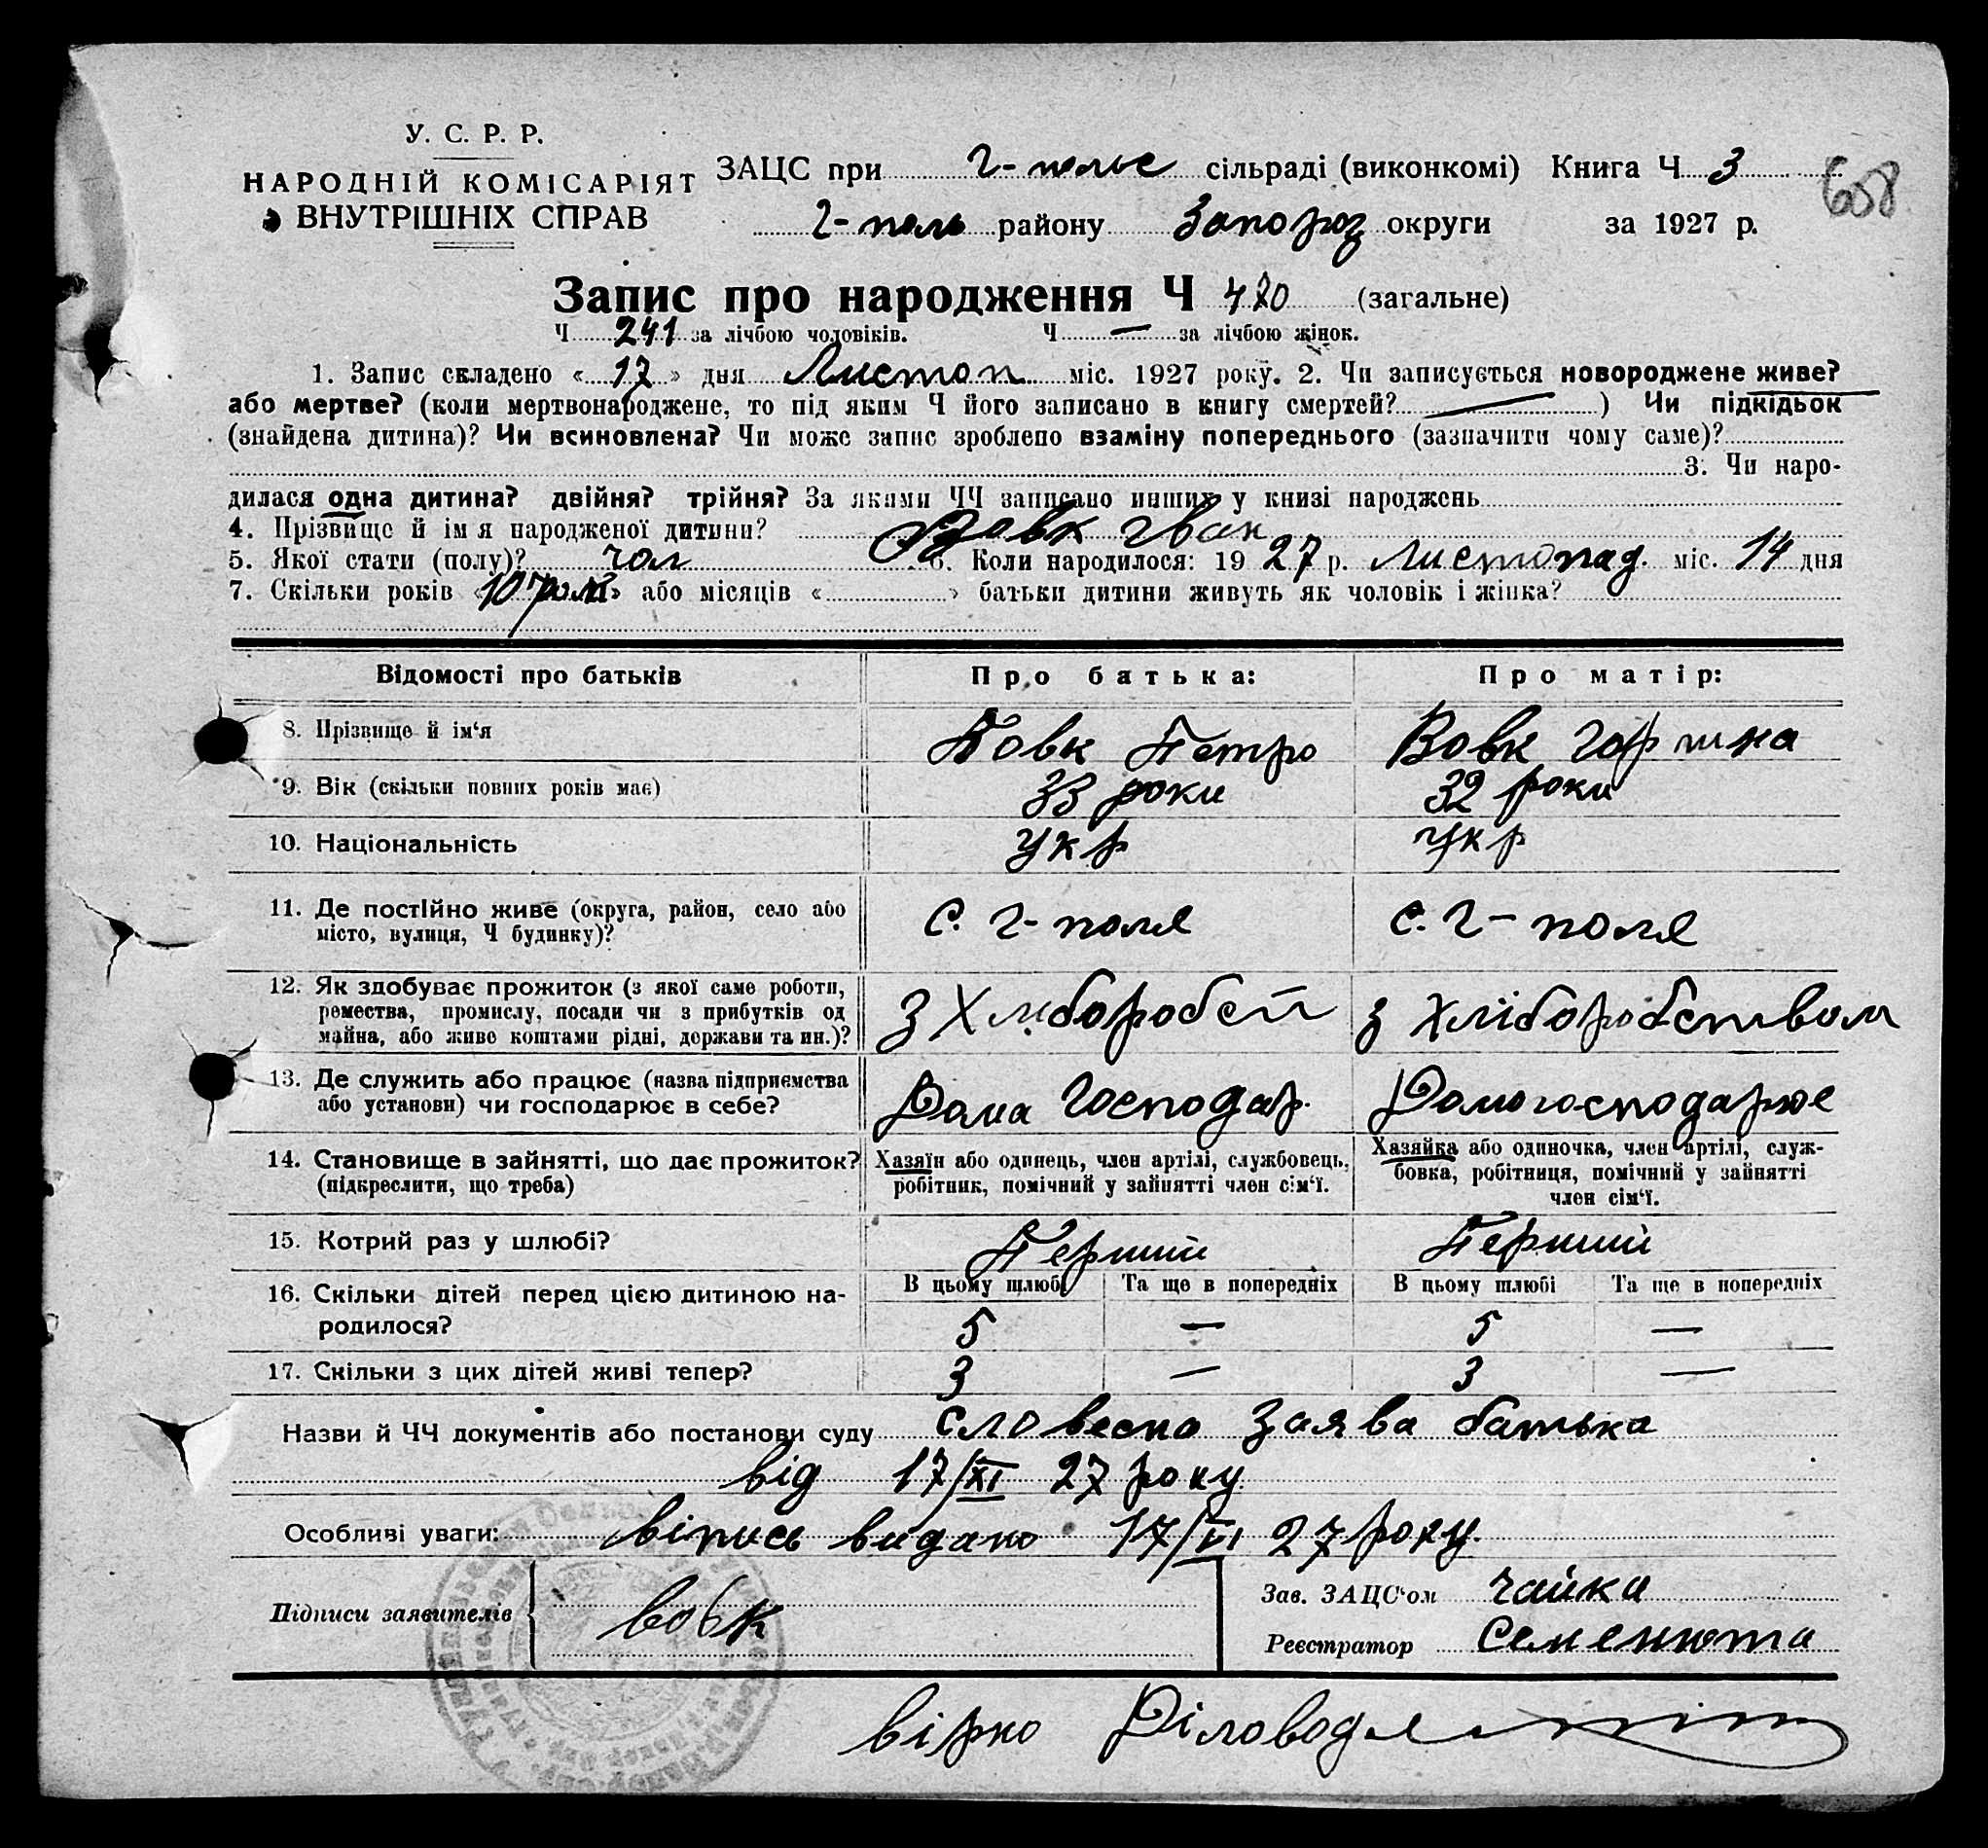 У. С. Р. Р.
НАРОДНІЙ КОМІСАРІЯТ
ВНУТРІШНІХ СПРАВ
ЗАЦС при Г-польс сільраді (виконкомі) Книга Ч 3
658
Г-поль району Запороз округи за 1927 р.
Запис про народження Ч 420 (загальне)
Ч 241 за лічбою чоловіків. Ч — за лічбою жінок.
1. Запис складено « 17 » дня Листоп міс. 1927 року. 2. Чи записується новороджене живе?
або мертве? (коли мертвонароджене, то під яким Ч його записано в книгу смертей? —) Чи підкідьок
(знайдена дитина)? Чи всиновлена? Чи може запис зроблено взаміну попереднього (зазначити чому саме)?
3. Чи наро-
дилася одна дитина? двійня? трійня? За якими ЧЧ записано инших у книзі народжень
4. Прізвище й ім я народженої дитини? Вовк Іван
5. Якої стати (полу)? чол 6. Коли народилося: 19 27 р. Листопад. міс. 14 дня
7. Скільки років «10 років» або місяців « » батьки дитини живуть як чоловік і жінка?
Відомості про батьків Про батька: Про матір:
8. Прізвище й ім‘я Вовк Петро Вовк Горпина
9. Вік (скільки повних років має) 33 роки 32 роки
10. Національність Укр Укр
11. Де постійно живе (округа, район, село або
місто, вулиця, Ч будинку)? С. Г-поля С. Г-поля
12. Як здобуває прожиток (з якої саме роботи,
ремества, промислу, посади чи з прибутків од
майна, або живе коштами рідні, держави та ин.)? З Хліборобст З Хліборобством
13. Де служить або працює (назва підприємства
або установи) чи господарює в себе? Дома господар. Домогосподарює
14. Становище в зайнятті, що дає прожиток?
(підкреслити, що треба)
Хазяїн або одинець, член артілі, службовець,
робітник, помічний у зайнятті член сім‘ї.
Хазяйка або одиночка, член артілі, служ-
бовка, робітниця, помічний у зайнятті
член сім‘ї.
15. Котрий раз у шлюбі? Перший Перший
В цьому шлюбі Та ще в попередніх В цьому шлюбі Та ще в попередніх
16. Скільки дітей перед цією дитиною на-
родилося? 5 — 5 —
17. Скільки з цих дітей живі тепер? 3 — 3 —
Назви й ЧЧ документів або постанови суду словесна заява батька
від 17/XI 27 року.
Особливі уваги: віпись видано 17/VI 27 року.
Підписи заявителів вовк
Зав. ЗАЦС‘ом Чайка
Реєстратор Семенюта
вірно Діловод